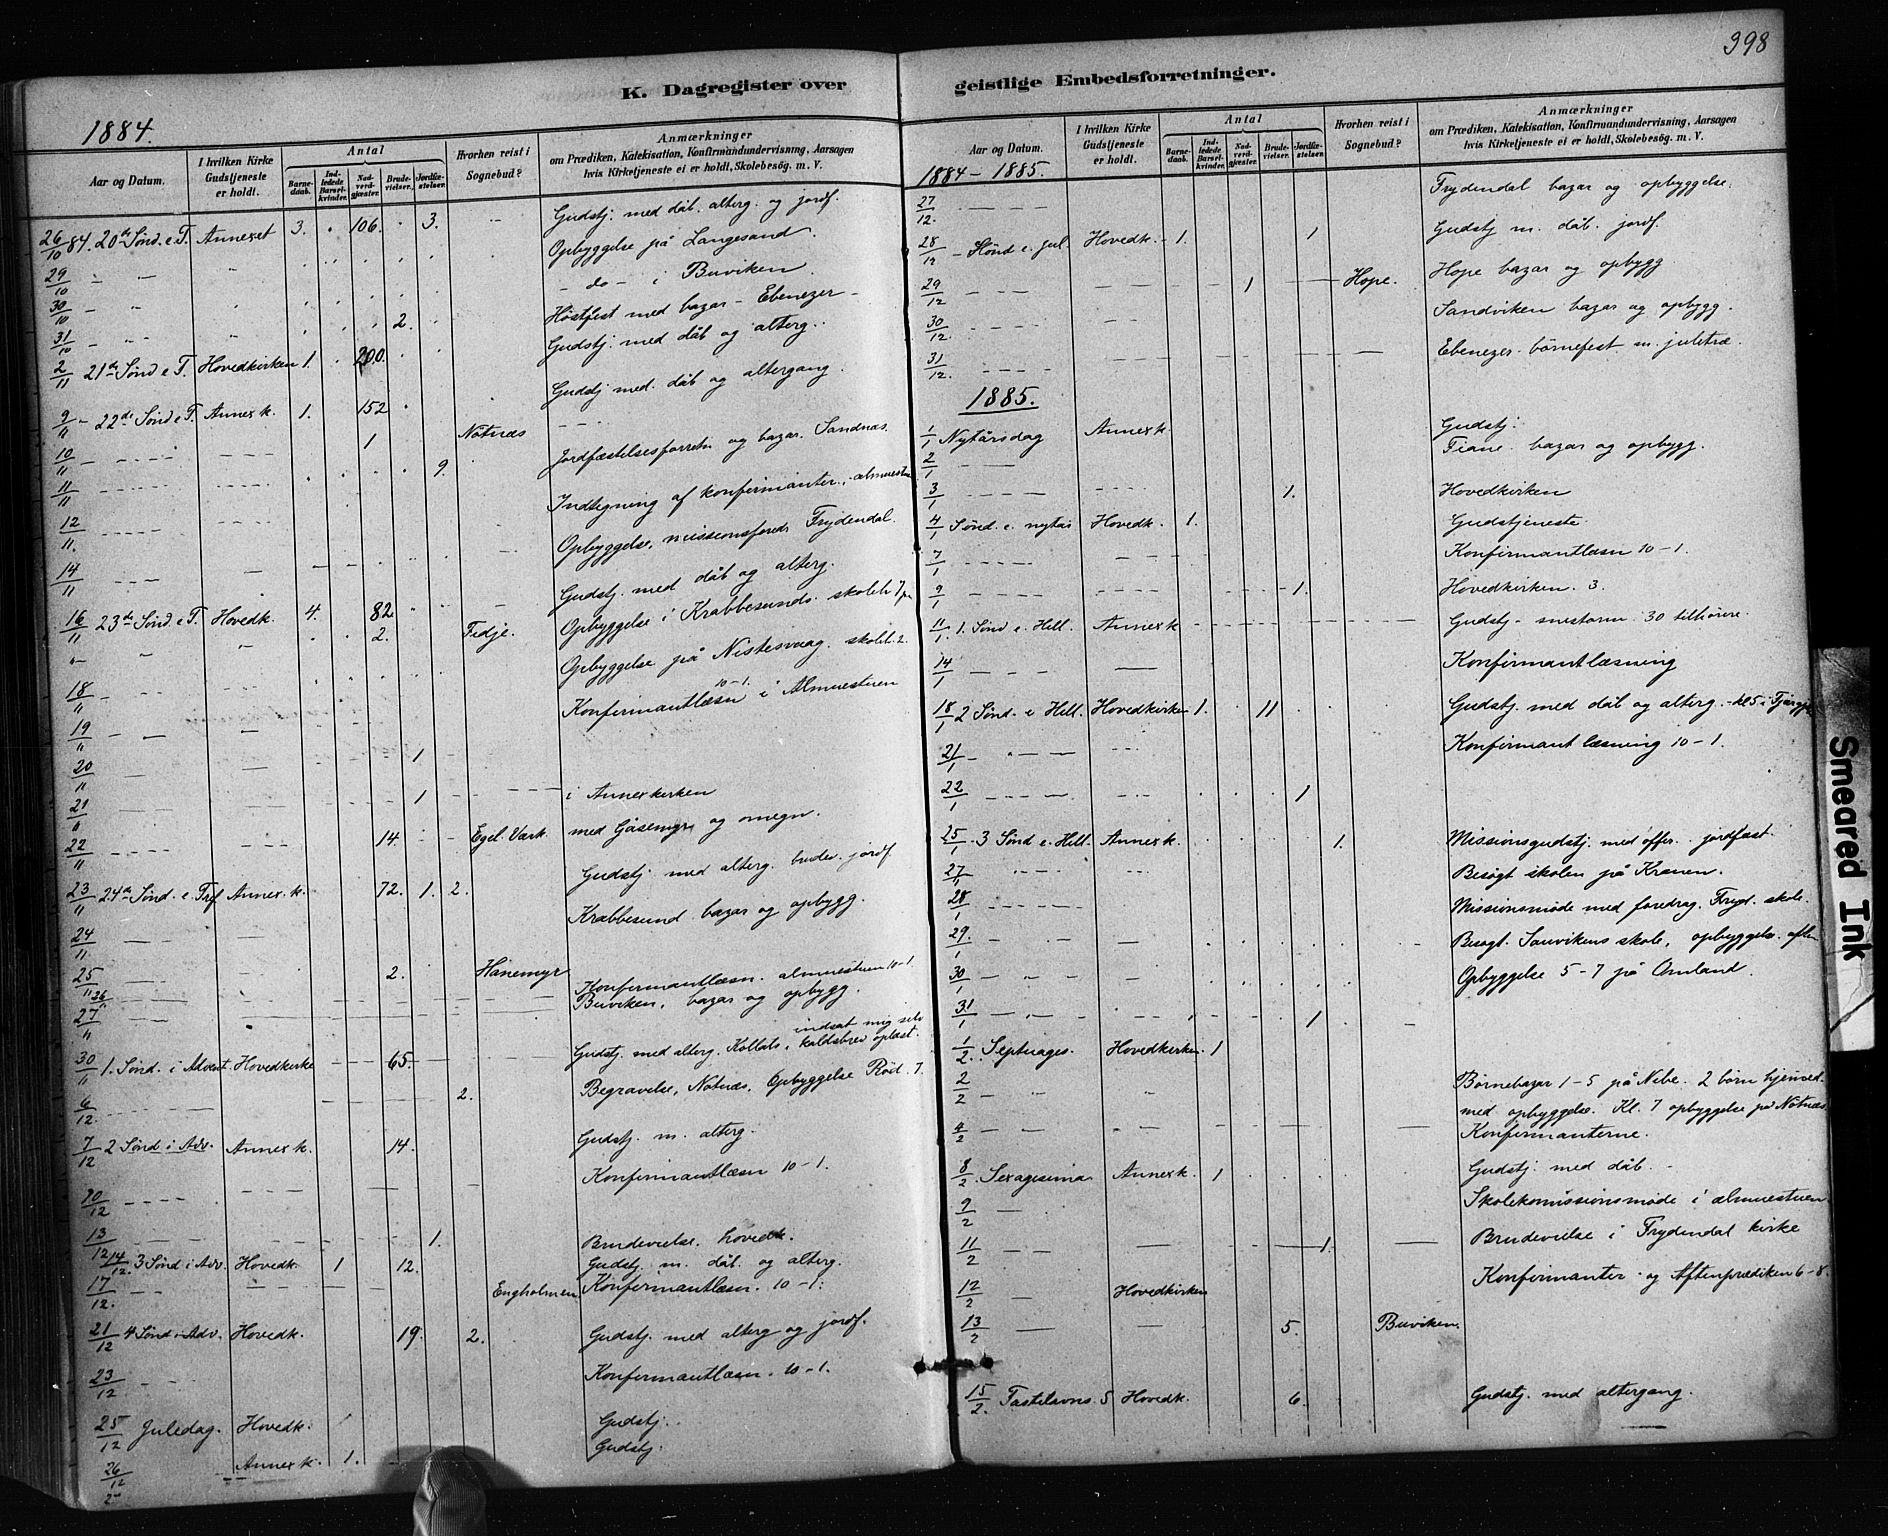 K. Dagregister over
1884.
Aar og Datum.
I hvilken Kirke Gudstjeneste er holdt.
Antal
Barnedaab.
Indledede Barselkvinder.
Nadverdgjæster.
Brudevielser.
Jordfæstelser.
Hvorhen reist i Sognebud?
Anmærkninger
om Prædiken, Katekisation, Konfirmandundervisning, Aarsagen
hvis Kirketjeneste ei er holdt, Skolebesøg. m. V.
26/10 84. 20de Sønd. e. T. Annexet 3. 106. 3. Gudstj. med dåb. alterg. og jordf.
29/10 Opbyggelse på Langesand.
30/10 - do - i Buviken.
31/10 2. Høstfest med bazar - Ebenezer -
2/11 21de Sønd e T. Hovedkirken 1. 200. Gudstj. med dåb og alterg.
9/11 - 22de Sønd e T. Annexk. 1. 152 Gudstj med. dåb og altergang.
10/11 1 Notnæs
11/11 9. Jordfæstelsesforretn og bazar. Sandnæs.
12/11. Indtegning af konfirmanter,
14/11 Opbyggelse, missionsfored. Frydendal.
16/11 23de Sønd. e T. Hovedk. 4. 82 Gudstj. med dåb og alterg.
2. Fidje. Opbyggelse i Krabbesunds skoleh
18/11 Opbyggelse på Nistesvaag. skolel.
19/11 Konfirmantlæsn 10-1. i Almuestuen
20/11 1
21/11 1 i Annexkirken
22/11 14. Egel. Værk med Gåsemyr og omegn.
23/11 24de Sønd. e. Tref Annex.k. 72. 1. 2. Gudstj med alterg. brudev. jordf.
24/11 Krabbesund bazar og opbygg.
25/11 2. Hånemyr
26/11 Konfirmantlæsn. almuestuen 10-1.
27/11 Buviken, bazar og opbygg.
30/11 1. Sønd. i Advent. Hovedkirke 65. Gudstj. med alterg. Kollats, kaldsbrev oplæst. indsat mig selv
6/12. 2. Begravelse, Notnæs, Opbyggelse Rød. 7.
7/12 2 Sønd i Adv. Annexk. 14. Gudstj. m. alterg.
10/12 Konfirmantlæsn 10-1.
13/12 1. Brudevielse. hovedk.
14/12. 3 Sønd i Adv. Hovedk. 1 12. Gudstj. m. dåb. og alterg.
17/12. Engholmen Konfirmantlæsn. 10-1.
21/12 4 Sønd i Adv. Hovedk. 19. 2. Gudstj. med alterg og jordf.
23/12. Konfirmantlæsn. 10-1.
25/12 Juledag. Hovedk. Gudstj.
26/12 Annexk. 1. Gudstj.
398
geistlige Embedsforretninger.
Aar og Datum.
1884 - 1885.
I hvilken Kirke Gudstjeneste er holdt.
Antal
Barnedaab.
Indledede Barselkvinder.
Nadverdgjæster.
Brudevielser.
Jordfæstelser.
Hvorhen reist i Sognebud?
Anmærkninger
om Prædiken, Katekisation, Konfirmandundervisning, Aarsagen
hvis Kirketjeneste ei er holdt, Skolebesøg. m. V.
27/12. Frydendal bazar og opbyggelse.
28/12 - Sønd e. Jul. Hovedk. 1. 1 Gudstj m. dåb. jordf.
29/12 1 Hope. Hope bazar og opbygg
30/12. Sandviken bazar og opbygg.
31/12. Ebenezer. børnefest m. juletræ.
1885.
1/1 Nytårsdag Annexk Gudstj.
2/1 Fiane bazar og opbygg.
3/1 1. Hovedkirken
4/1 Sønd. e. nytår Hovedk. 1. Gudstjeneste.
7/1 Konfirmantlæsn 10-1.
9/1 1. Hovedkirken. 3.
11/1. 1. Sønd e. Hell. Annexk Gudstj - snestorm 30 tilhørere.
14/1 Konfirmantlæsning
18/1 2 Sønd. e Hell. Hovedkirken 1. 11 Gudstj. med dåb og alterg. - kl 5 i
21/1 Konfirmant læsning 10-1.
22/1 1
25/1 3 Sønd e. Hell. Annexk. 1. Missionsgudstj. med offer. jordfæst.
27/1 Besøgt skolen på Kranen.
28/1 Missionsmøde med foredrag, Fryd. skole.
29/1 Besøgt. Sauvikens skole, opbyggelse. aften
30/1 Opbyggelse 5-7 på Omland.
31/1 1
1/2. Septuages. Hovedkirken. 1
2/2 Børnebazar 1-5 på Nibe. 2 børn hjemmed.
med opbyggelse. Kl. 7 opbyggelse på Notnæs.
4/2 Konfirmanterne.
8/2 Sexagesima Annexk. 1 Gudstj. med dåb.
9/2 Skolekomissionsmøde i almuestuen
11/2 1. Brudevielse i Frydendal kirke
12/2 Hovedkirken Konfirmanter og Aftenprædiken 6-8.
13/2 5. Buviken.
15/2. Fastelavns. S Hovedk. 6. Gudstj. med altergang.
Smeared Ink